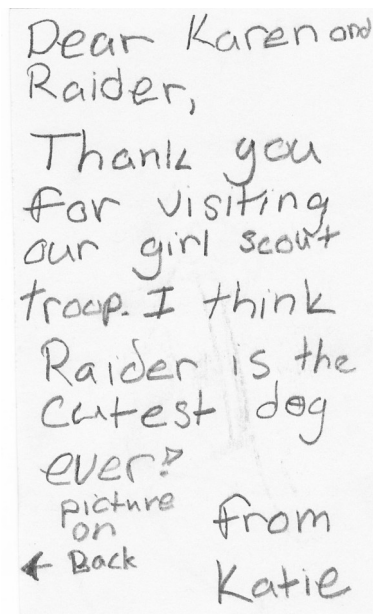 Dear Karen and
Raider,
Thank you
for visiting
our girl scout
troop. I think
Raider is the
cutest dog
ever!
picture
on
Back
from
Katie